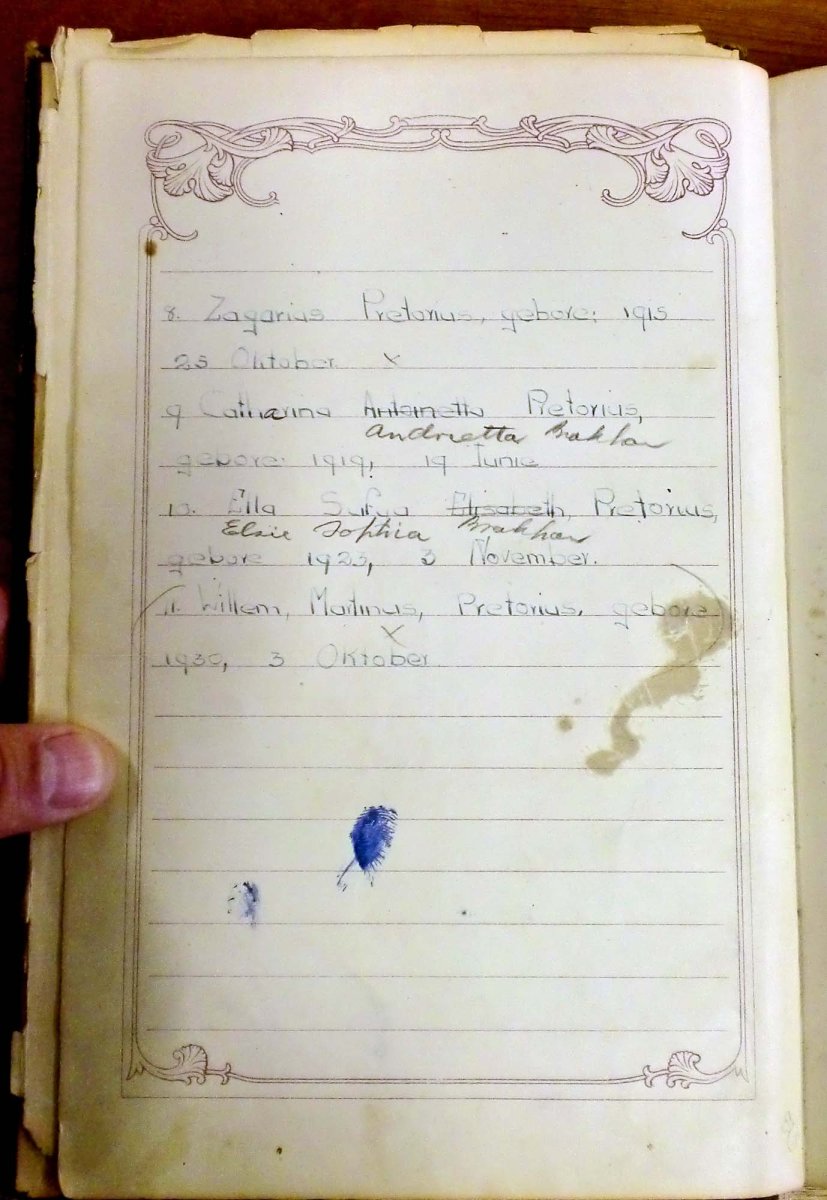 8. Zagarius Pretorius, gebore: 1915
25 Oktober. X
9 Catharina Antoinetta Pretorius,
Andrietta
gebore: 1919, 19 Junie
10. Ella Sufya Elisabeth, Pretorius,
Elsie Sophia
gebore 1923, 3 November.
11. Willem, Martinus, Pretorius. gebore
X
1930, 3 Oktober